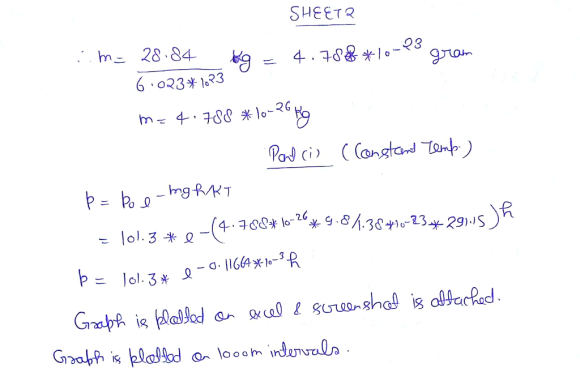 SHEET2
∴ m = 28.84 / 6.023*10²³ kg = 4.788*10⁻²³ gram
m = 4.788*10⁻²⁶ kg
Part (i) (Constant Temp.)
p = p₀ e^-mgh/KT
= 101.3 * e^-(4.788*10⁻²⁶*9.8/1.38*10⁻²³*291.15)h
p = 101.3* e^-0.1166*10⁻³h
Graph is plotted on excel & screenshot is attached.
Graph is plotted on 1000m intervals.